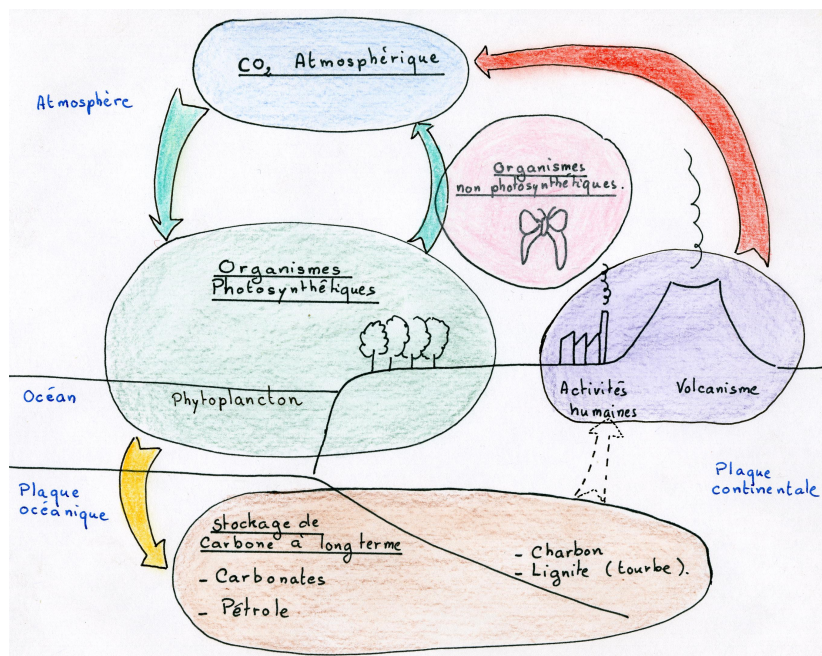 CO₂ Atmosphérique
Atmosphère
Organismes
non photosynthétiques.
Organismes
Photosynthétiques
Océan
Phytoplancton
Activités
humaines
Volcanisme
Plaque
océanique
Plaque
continentale
Stockage de
Carbone à long terme
- Carbonates
- Pétrole
- Charbon
- Lignite (tourbe).